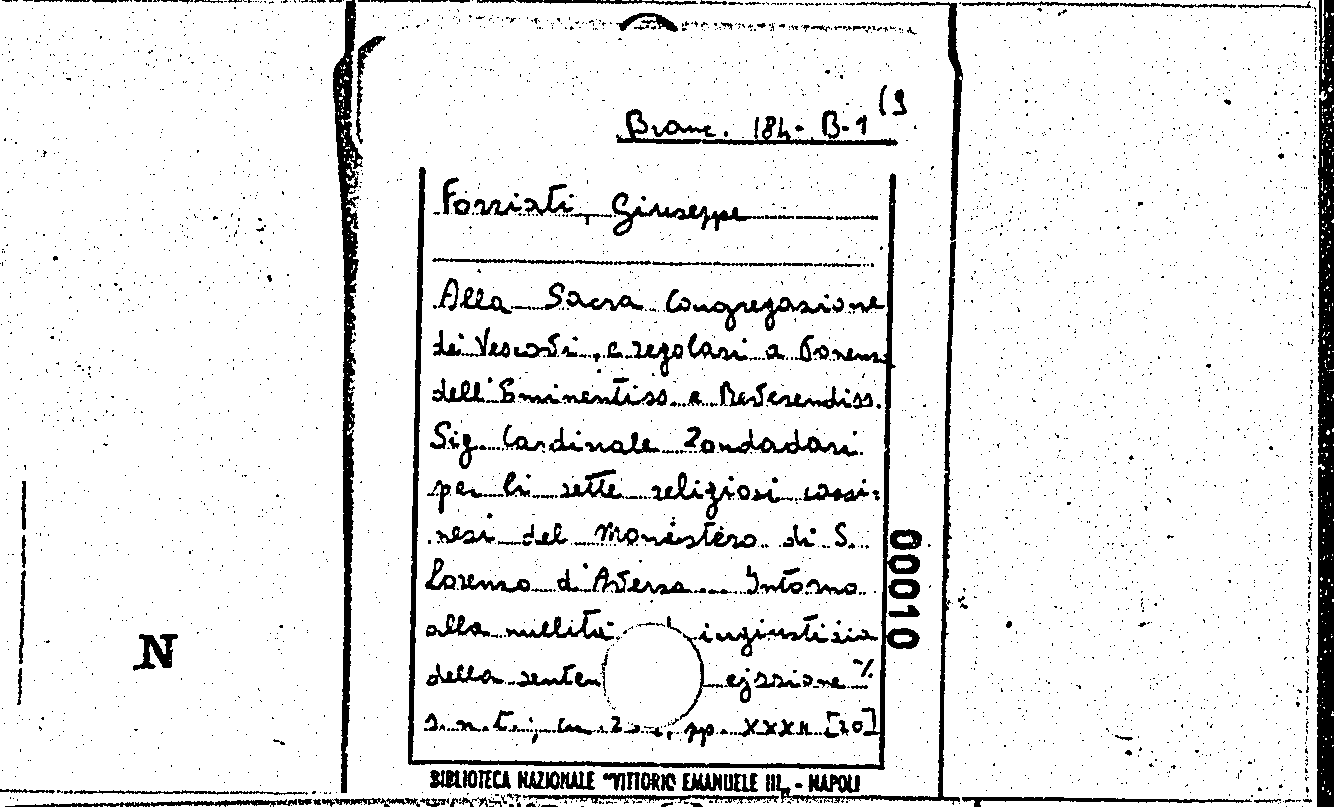 Branc. 184- B-1 (9
Forziati, Giuseppe
Alla Sacra Congregazione
dei Vescovi, e regolari a
dell'Eminentiss. e Reverendiss.
Sig. Cardinale Zondadari
per li sette religiosi cassi-
nesi del Monistero di S.
Lorenzo d'Aversa... Intorno
alla nullità ingiustizia
della senten ejezione %
s.n.t., cm. pp. [20]
00010
N
BIBLIOTECA NAZIONALE "VITTORIO EMANUELE III„ - NAPOLI